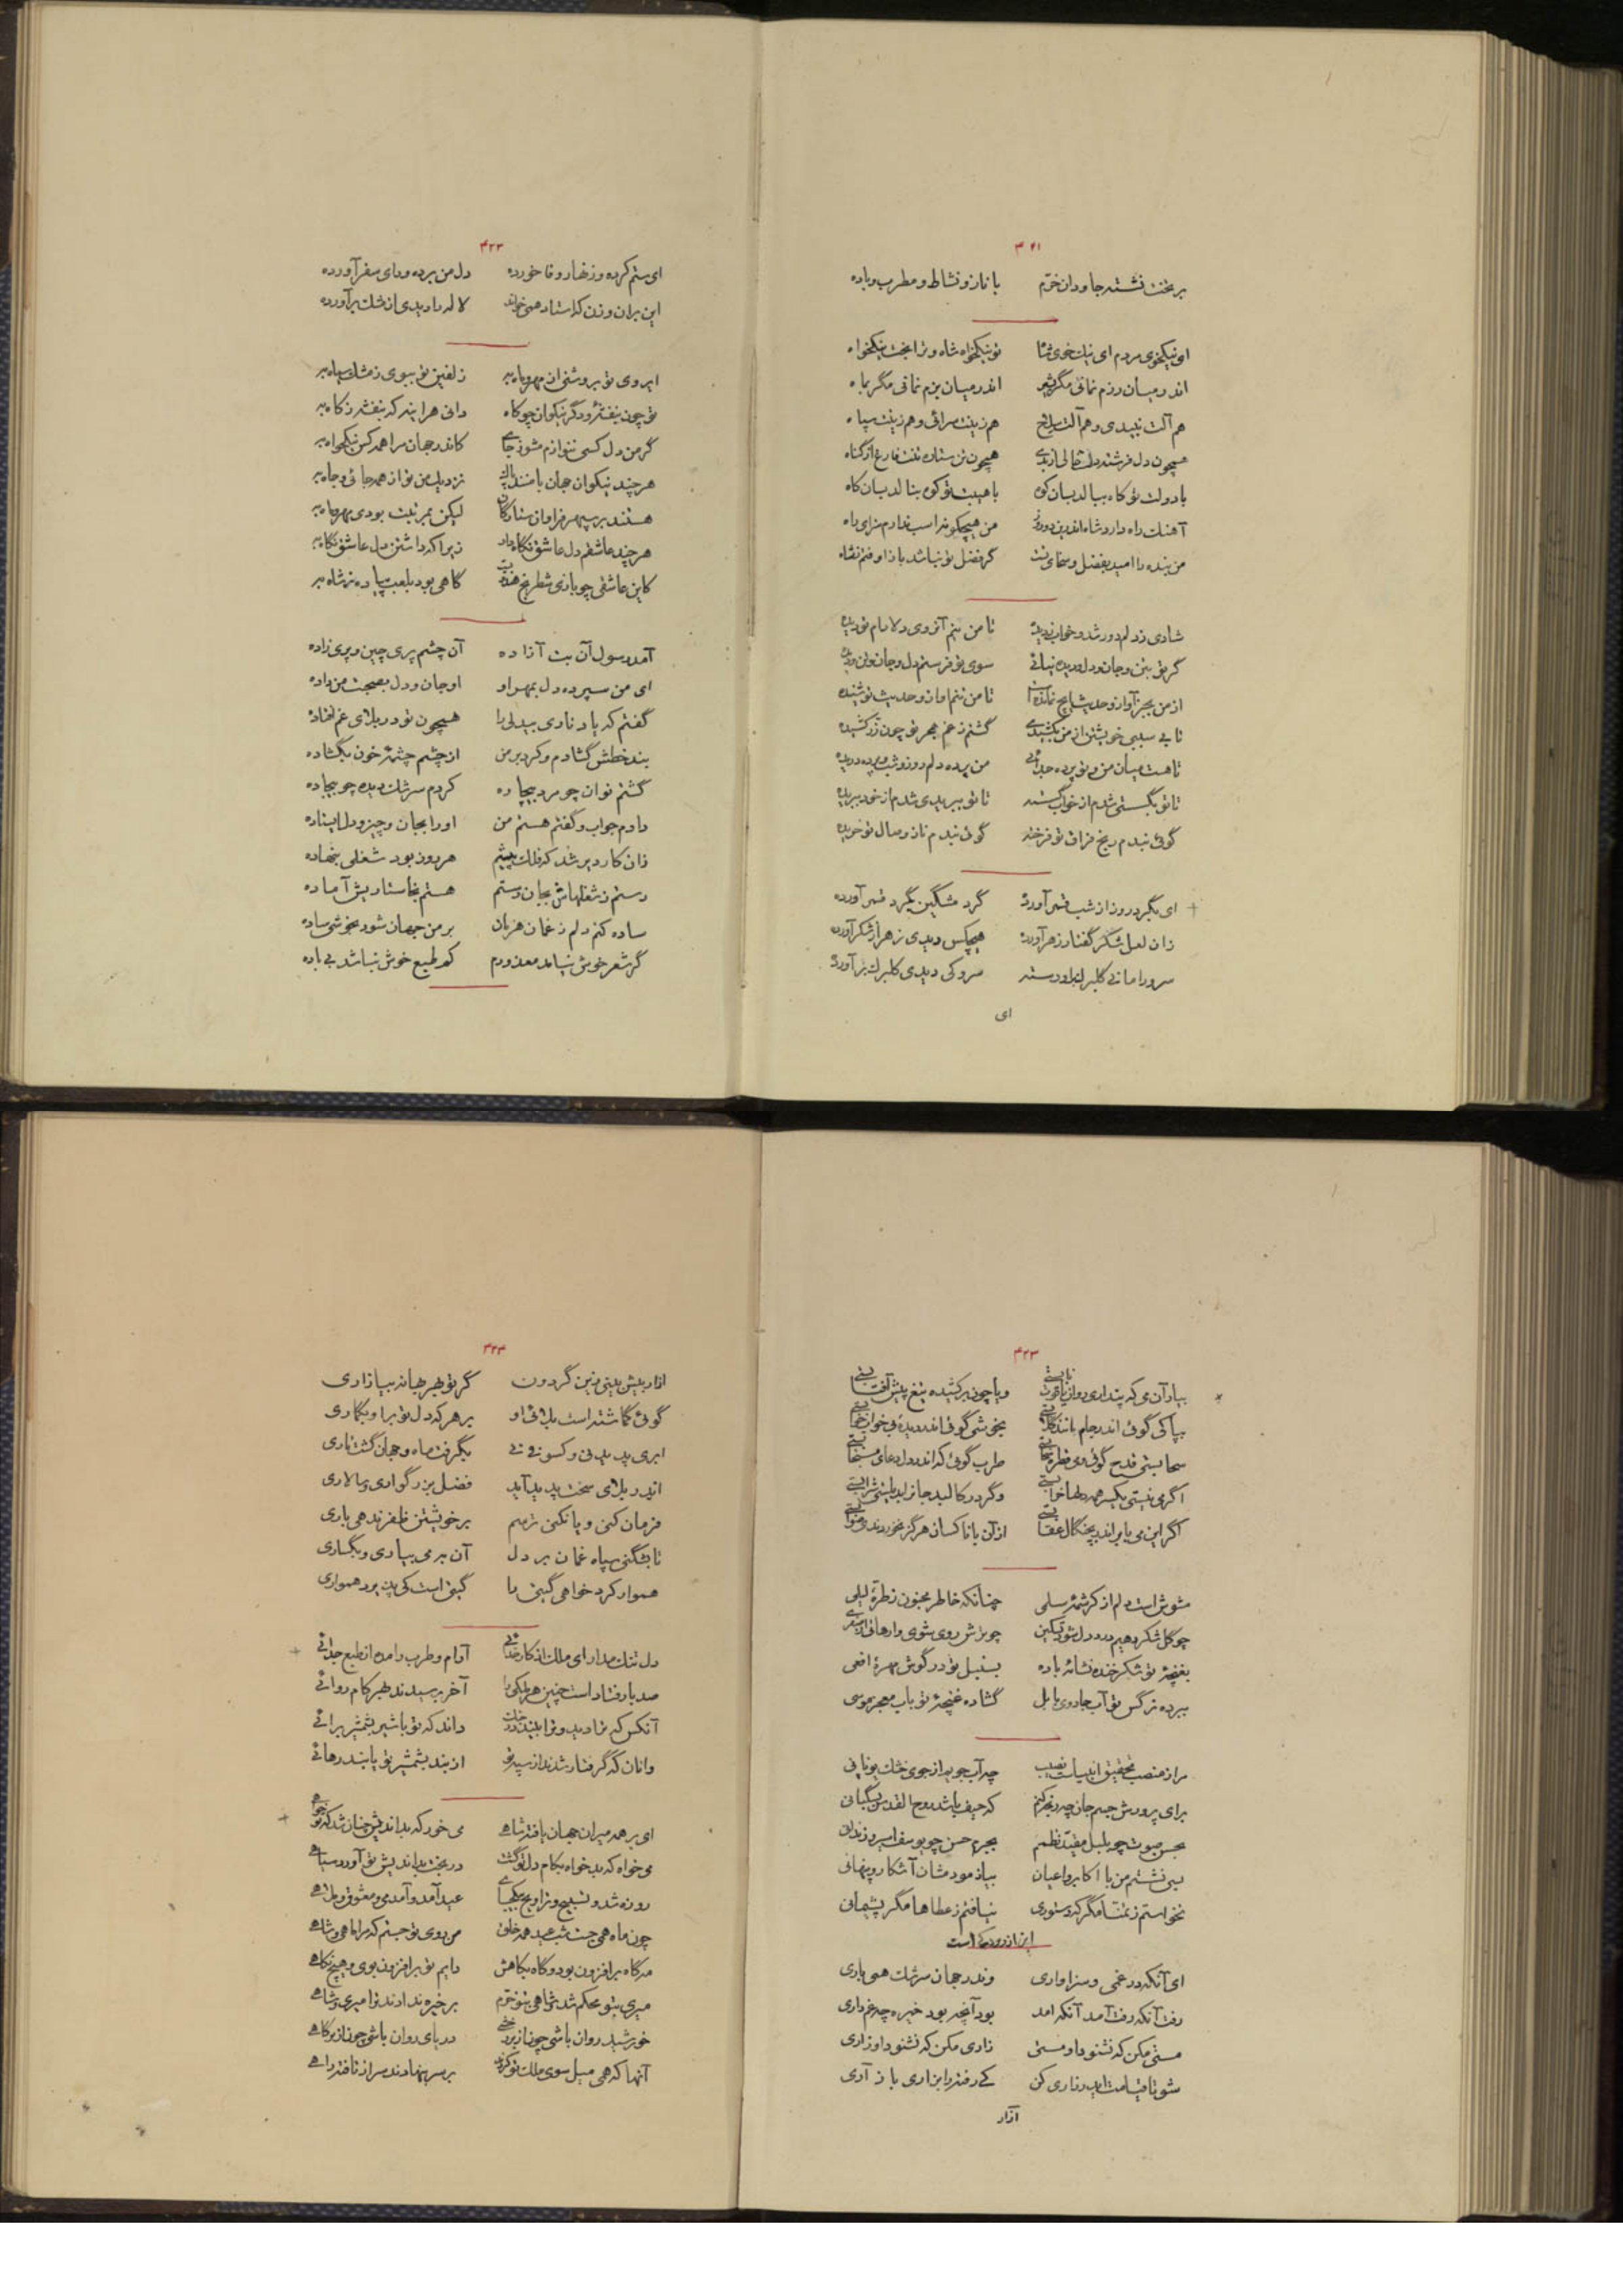 ۴۲۱
بر تخت نشسته جاودان خرم با ناز و نشاط و مطرب و باده
ای نیکخوی مردم ای نیک خوی شاه تو نیکخواه شاه و ترا بخت نیکخواه
اندر میان رزم نمانی مگر بشیر اندر میان بزم نمانی مگر بماه
هم آلت نبیدی و هم آلت سلاح هم زینت سرائی و هم زینت سپاه
همچون دل فرشته دلت خالی از بدی همچون تن ستاره تنت فارغ از گناه
با دولت تو کاه ببالد بسان کوه با هیبت تو کوه بنالد بسان کاه
آهنگ راه دارد شاه اندرین دو روز من هیچگونه اسب ندارم سزای راه
من بنده را امید بفضل و سخای تست گر فضل تو نباشد باذا و فتم نشاه
شادی ز دلم دور شد و خواب ز دیده تا من بنم آنروی دلارام تو دیده
گر تو بتن و جان و دل و دیده نیائی سوی تو فرستم دل و جان و تن و دیده
از من بجز آواز و حدیث ایچ نمانده است تا من نیم آواز و حدیث تو شنیده
تا بی سببی خویشتن از من بکشیدی گشتم ز غم هجر تو چون زر کشیده
تا هست میان من و تو پرده جدائی من پرده دلم روز و شب و پرده دریده
تا تو بگسستی شدم از خواب گسسته تا تو ببریدی شدم از خود ببریده
گوئی نبدم رنج فراق تو فرخته گوئی نبدم ناز وصال تو خریده
ای بگرد روز از شب قیر آورده گرد مشگین بگرد قیر آورده
زان لعل شکر گفتار زهر آورده هیچکس دیدی زهر از شکر آورده
سرو را مانی گلبرگ بر او رسته سرو کی دیدی گلبرگ بر آورده
ای
۴۲۲
ای ستم کرده و زنهار وفا خورده دل من برده و رای سفر آورده
این بران وزن که استاد همی خواند لاله را دیدی از مشک برآورده
ابروی تو بروشنی از مهر و ماه به زلفین تو ببوی ز مشک سیاه به
تو چون بنفشهٔ و دگر نیکوان چو کاه دانی هر اینه که بنفشه ز کاه به
گر من دل کسی ننوازم مشو ز جای کاندر جهان مرا همه کس نیکخواه به
هرچند نیکوان جهان با منند پاک نزدیک من تو از همه جائی و جاه به
هستند بر سپهر فراوان ستارگان لیکن بمرتبت بودی مهر و ماه به
هرچند عاشقم دل عاشق نگاه دار زیرا که داشتن دل عاشق نگاه به
کاین عاشقی چو بازی شطرنج هندیست گاهی بود بلعب پیاده ز شاه به
آمد رسول آن بت آزاده آن چشم پری چین و پری زاده
ای من سپرده دل بمهر او او جان و دل بصحبت من داده
گفتم که یاد ناری بیدلی را همچون تو در بلای غم افتاده
بند خطش گشادم و کرد بر من از چشم چشمهٔ خون بگشاده
گشتم نوان چو مرد بیچاره کردم سرشک دیده چو بیجاده
دادم جواب و گفتم هستم من او را بجان و چیز و دل ایستاده
زان کار دیر شد که فلک پیشم هر روز بود شغلی بنهاده
رستم ز شغلهاش بجان رستم هستم بخاستار بش آماده
ساده کنم دلم ز غمان هزمان بر من جهان شود بخوشی ساده
گر شعر خوش نیامد معذورم که طبع خوش نباشد بی باده
۴۲۳
بیار آن می که پنداری روان یاقوت نابستی و یا چون برکشیده تیغ پیش آفتابستی
بپاکی گوئی اندر جام مانند گلابستی بخوشی گوئی اندر دیده بی خواب خوابستی
سحابستی قدح گوئی و می قطره سحابستی طرب گوئی که اندر دل دعای مستجابستی
اگر می نیستی یکسر همه دلها خرابستی وگر در کالبد جانرا بدیلستی شرابستی
اگر این می بابر اندر بچنگال عقابستی از آن تا ناکسان هرگز نخوردندی صوابستی
مشوش است دلم از کرشمهٔ سلمی چنانکه خاطر مجنون ز طرهٔ لیلی
چو گل شکر دهیم درد دل شود تسکین چو ترش روی شوی وارهانی از صفری
بغنچهٔ تو شکر خنده نشانهٔ باده بسنبل تو در گوش مهرهٔ افعی
ببرده نرگس تو آب جادوی بابل گشاده غنچهٔ تو باب معجز موسی
مرا ز منصب تحقیق انبیاست نصیب چه آب جویم از جوی خشک یونانی
برای پرورش جسم جان چه رنجه کنم که حیف باشد روح القدس بسگبانی
بحسن صوت چو بلبل مقید نظمم بجرم حسن چو یوسف اسیر زندانی
بسی نشستم من با اکابر و اعیان بیازمودمشان آشکار و پنهانی
نخواستم ز تمنا مگر که دستوری نیافتم ز عطاها مگر پشیمانی
این از رودکی است
ای آنکه در غمی و سزاواری وندر جهان سرشک همی باری
رفت آنکه رفت آمد آنکه امد بود آنچه بود خیره چه غم داری
مستی مکن که نشنود او مستی زاری مکن که نشنود او زاری
شو تا قیامت اید زاری کن کی رفته را بزاری باز آری
آزار
۴۲۴
ازار بیش بینی زین گردون گر تو بهر بهانه بیازاری
گوئی گماشته است بلائی او بر هر که دل تو بر او بگماری
ابری پدید نی و کسوفی نی بگرفت ماه و جهان گشت تاری
اندر بلای سخت پدید آید فضل بزرگواری و سالاری
فرمان کنی و یا نکنی ترسم بر خویشتن ظفر ندهی باری
تا بشکنی سپاه غمان بر دل آن به می بیاری و بگساری
هموار کرد خواهی گیتی را گیتی است کی پذیرد همواری
دل تنگ مدار ای ملک از کار خدائی آرام و طرب را مده از طبع جدائی
صد بار فتاد است چنین هر ملکی را آخر برسیدند بهر کام روائی
آنکس که ترا دید و ترا بیند در جنگ داند که تو با شیر بشمشیر برائی
وانان که گرفتار شدند از سپه تو از بند بشمشیر تو یابند رهائی
ای بر همه میران جهان یافته شاهی می خور که بداندیش چنان شد که تو خواهی
می خواه که بدخواه بکام دل تو گشت در بخت بداندیش تو آورد سیاهی
روزه شد و تسبیح و تراویح بیکجای عید آمد و آمد می و معشوق و ملاهی
چون ماه همی جست شب عید همه خلق من روی تو جستم که مرا ماهی و شاهی
مه گاه بر افزون بود و گاه بکاهش دایم تو بر افزون بوی و هیچ نکاهی
میری بتو محکم شد و شاهی بتو خرم بر خیره ندادند ترا میری و شاهی
خورشید روان باشی چون از بر رخشی دریای روان باشی چون از بر گاهی
آنها که همی میل سوی ملک تو کردند بر سر بنهادند سر از تافته راهی